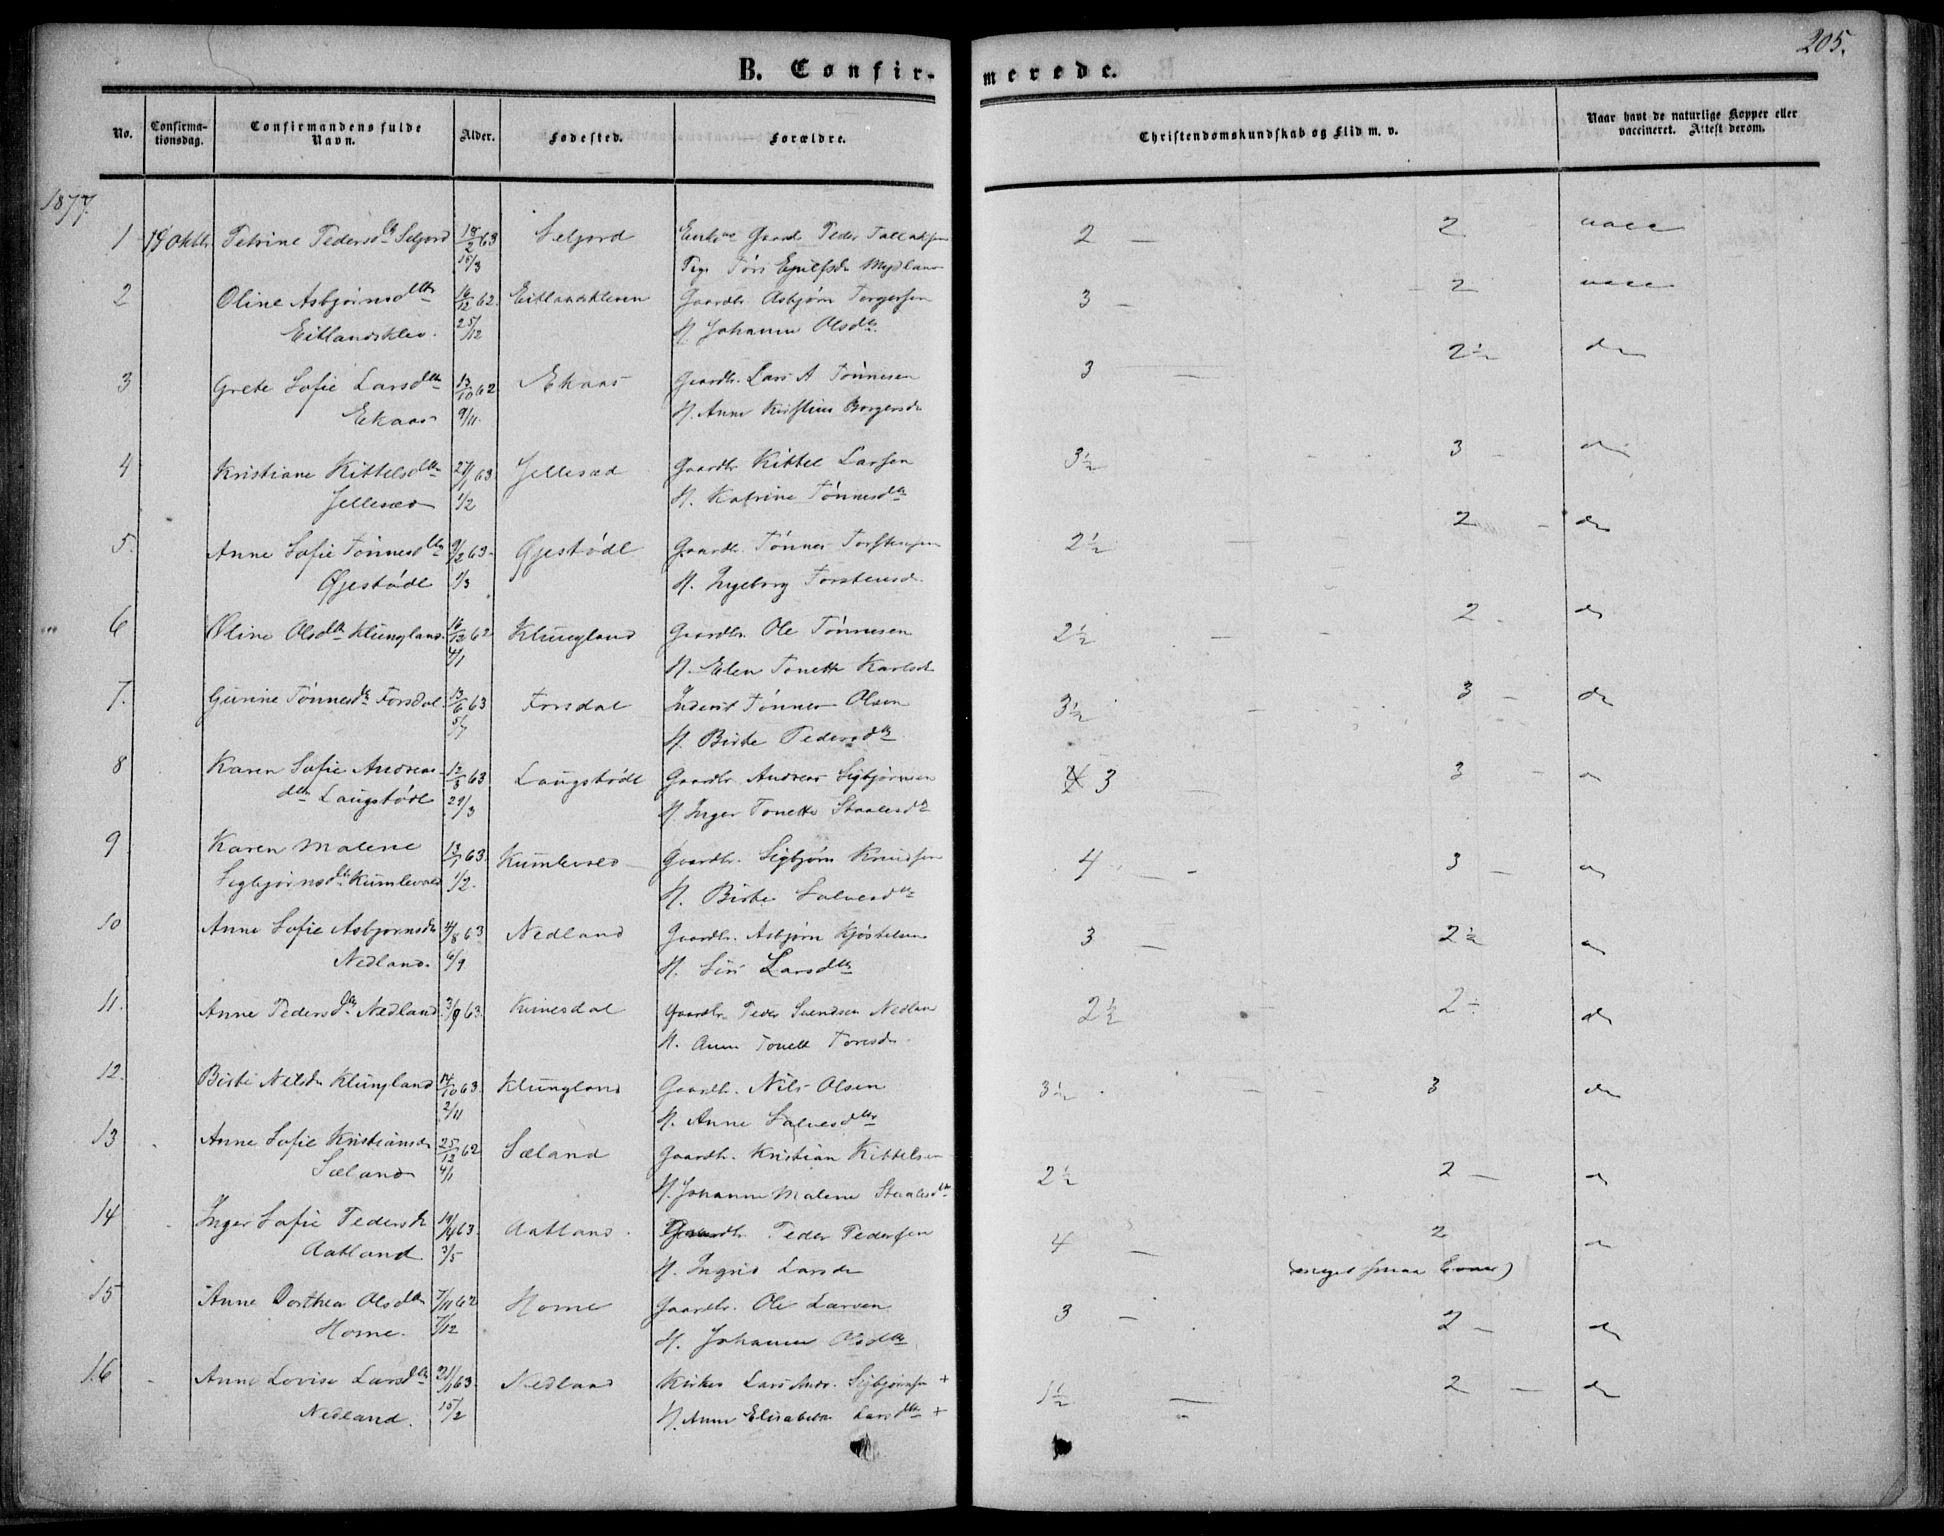 205.
B. Confir-
merede.
No.
Confirma-
tionsdag.
Confirmandens fulde
Navn.
Alder.
Fødested.
Forældre.
Christendomskundskab og Flid m. v.
Naar havt de naturlige Kopper eller
vaccineret. Attest derom.
1877.
1 14 Oktbr Petrine Pedersdtr Seljord 63 Seljord Gaardbr Peder
15/3 Pige
2 2 vacc
2 Oline Asbjørnsdtr 16/12 62 Eitlandskleven Gaardbr Asbjørn Torgersen
Eitlandsklev. 25/12 H. Johanne Olsdtr
3 2 vacc
3 Grete Sofie Larsdtr 13/10 62 Ekaas Gaardbr. Lars A Tønnesen
Ekaas 9/11 H. Anne Kristine
3 2½ do
4 Kristiane Kittelsdtr 63 Jellesæd Gaardbr Kittel Larsen
Jellesæd 1/2 H. Katrine Tønnesdtr
3½ 3 do
5. Anne Sofie Tønnesdtr 9/2 63 Øjestødl Gaardbr. Tønnes
Øjestødl 1/3 H. Ingeborg Torstensd.
2½ 2 do
6 Oline Olsdtr Klungland 16/12 62 Klungland Gaardbr. Ole Tønnesen
4/1 H. Elen Tonette Karlsd
2½ 2 do
7. Gurine Tønnesdtr Forsdal 13/6 63 Forsdal Inderst Tønnes Olsen
5/7 H. Birte Pedersdtr
3½ 3 do
8 Karen Sofie Andreas- 12/3 63 Laugstødl Gaardbr. Andreas Sigbjørnsen
dtr Laugstødl 29/3 H. Inger Tonette Staalesdtr
3 3
9 Karen Malene 13/1 63. Kumlevold Gaardbr. Sigbjørn Knudsen
Sigbjørnsdtr Kumlevold 1/2. H. Birte Salvesdtr
4 3
10 Anne Sofie Asbjørnsdtr 4/8 63 Nedland Gaardbr. Asbjørn Kjøstelsen
Nedland. 6/9 H. Siri Larsdtr
3 2½
11. Anne Pedersdtr Nedland 3/9 63. Kvinesdal Gaardbr. Peder Svendsen Nedland
H. Anne Tonette
2½ 2 do
12. Birte Nilsdtr Klungland 14/10 63. Klungland Gaardbr. Nils Olsen
2/11 H. Anne Salvesdtr
3½ 3 do
13 Anne Sofie Kristiansdtr 25/12 62 Sæland Gaardbr. Kristian Kittelsen
Sæland 4/1 H. Johanne Malene Staalesdtr
2½ 2 do
14 Inger Sofie Pedersdtr 19/4 63. Aatland Gaardbr. Peder Pedersen
Aatland 3/5 H. Ingrid Larsdtr
4 2
(meget smaa Evner)
15 Anne Dorthea Olsdtr 7/11 62 Horne Gaardbr. Ole Larsen
Horne. 7/12 H. Johanne Olsdtr
3 2 do
16 Anne Lovise Larsdtr 21/1 63. Nedland Lars Andr. Sigbjørnsen +
Nedland. 15/2 H. Anne Elisabeth Larsdtr +
1½ 2 do